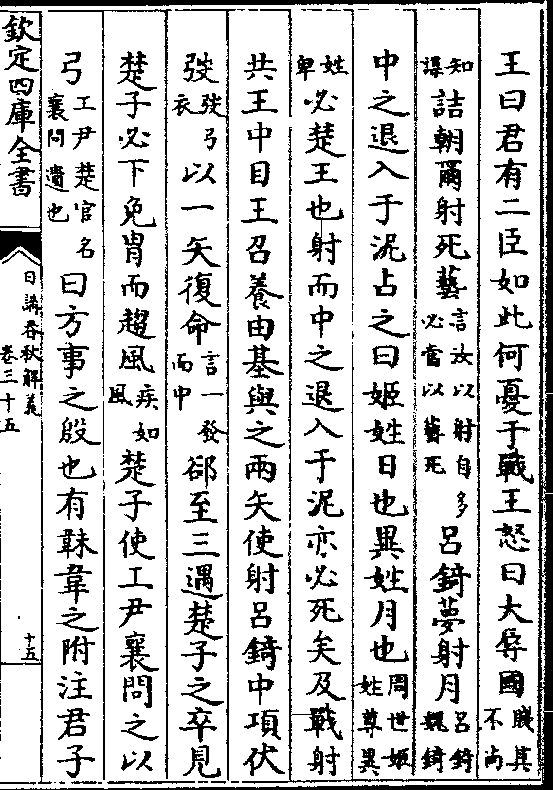 王曰君有二臣如此何憂于戰王怒曰大辱國賤其不尚
知謀詰朝爾射死藝言汝以射自多必當以藝死呂錡夢射月呂錡魏錡
中之退入于泥占之曰姬姓日也異姓月也周世姬姓尊異
姓卑必楚王也射而中之退入于泥亦必死矣及戰射
共王中目王召養由基與之兩矢使射呂錡中項伏
弢弢弓衣以一矢復命言一發而中郤至三遇楚子之卒見
楚子必下免胄而趨風疾如風楚子使工尹襄問之以
弓工尹楚官名襄問遺也曰方事之殷也有韎韋之附注君子
欽定四庫全書
日講春秋解義
卷三十五
十五